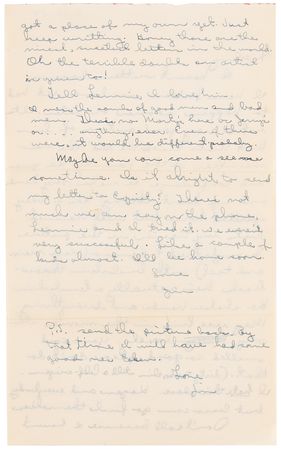 got a place of my own yet. Just
keep writing. Honey those are the
nicest, sweetest letters in the world.
Oh the terrible doubts an artist
is given to!
Tell Lennie, I love him. I
I miss the company of good men and bad
men. There's no Marty's here or Jerry's
or ... anything, ever. Even if there
were, it would be different, probably.
Maybe you can come &
sometime. Is it alright to send
my letters to Equity? There's not
much we can say on the phone,
Lennie and I tried it. We weren't
very successful. Like a couple of
almost. I'll be home soon.
Love
P.S. send the picture back. By
that time I will have had some
good news
Love